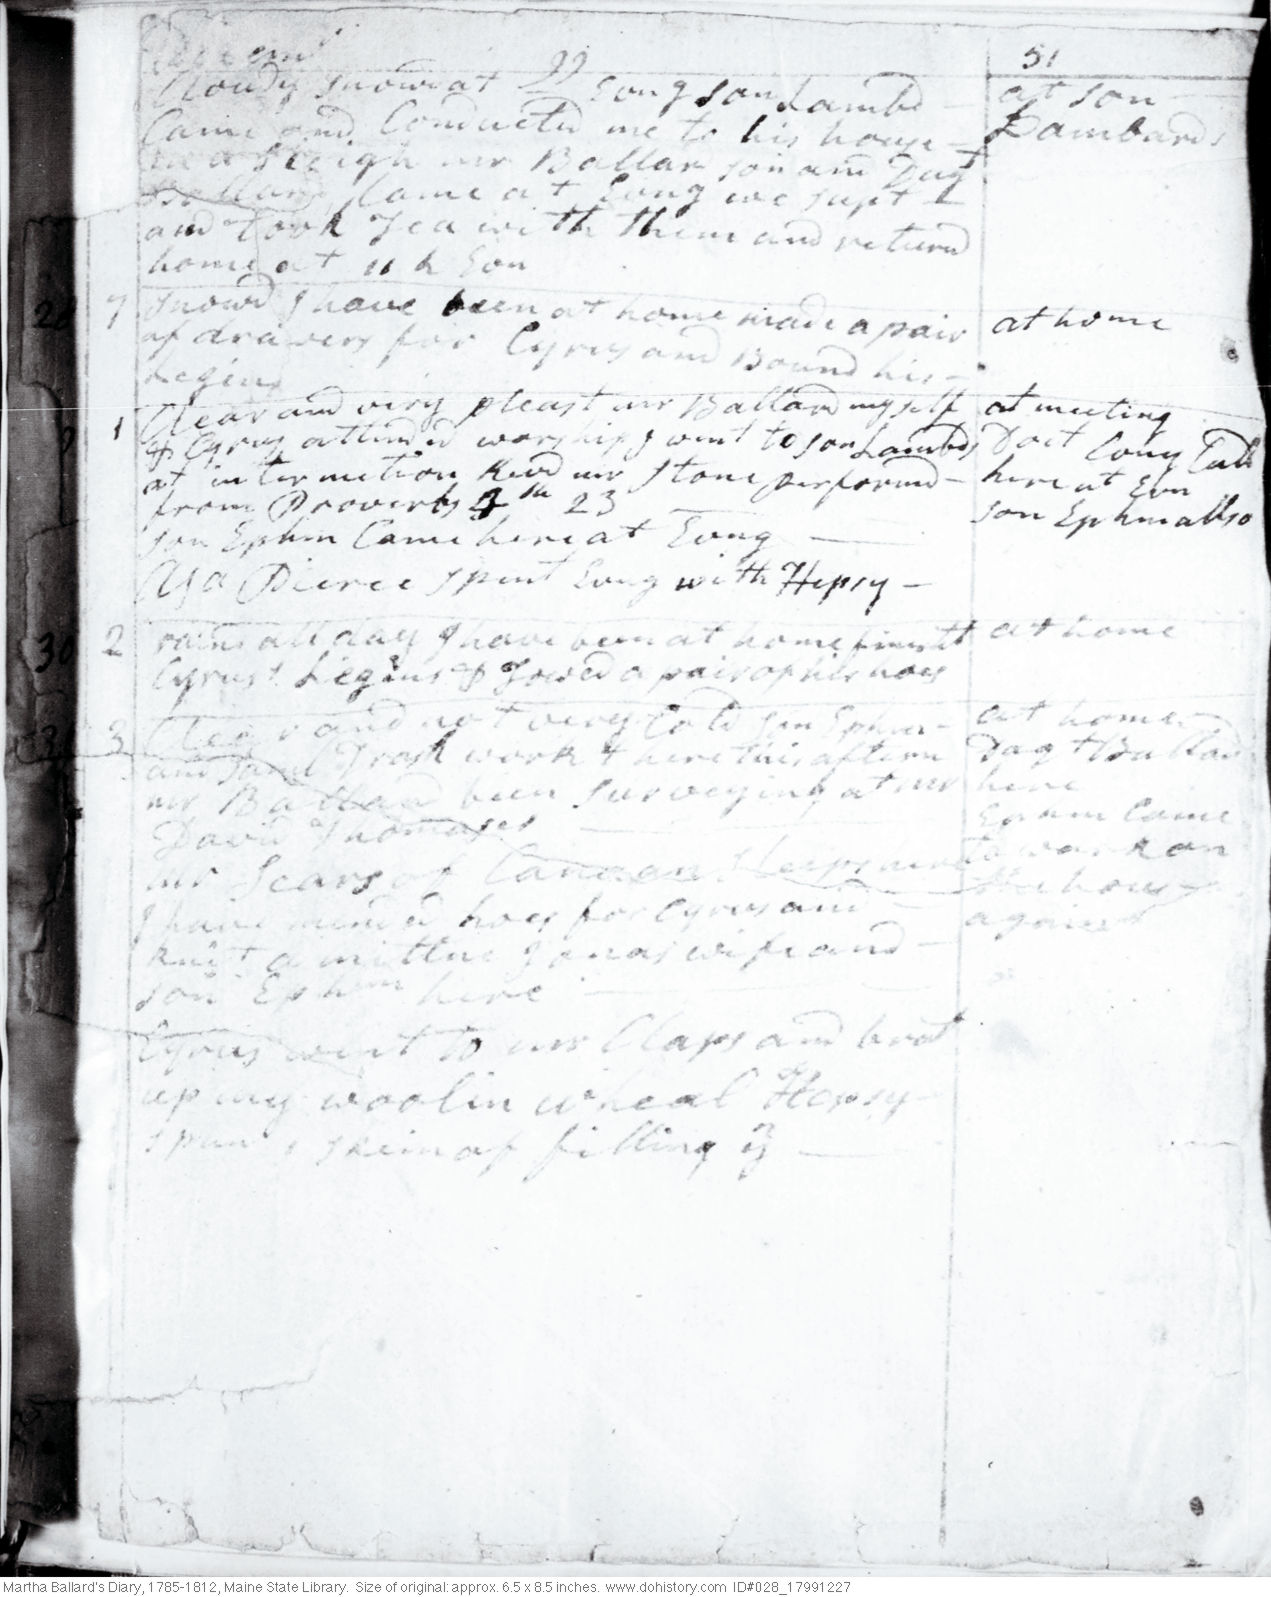 Decem
51
Cloudy snowd at Evng son Lambd
Came and Conducted me to his house
in a sleigh mr Ballard son and Dagt
Ballard Came at Evng we supt
and Took Tea with them and returnd
home at 11 h Evn
at son
Lambards
28 7 snowd I have been at home made a pair
of drawers for Cyrus and Bound his
legins
at home
1 Clear and very pleast mr Ballard myself
& Cyrus attended worship I went to son Lambds
at intermition Revd mr Stone performd
from Proverbs 4th 23
son Ephm Came here at Evng
Asa Pierce spent Evng with Hepsy
at meeting
Doct Cony Calld
here at Evn
son Ephm allso
30 2 rains all day I have been at home finisht
Cyrus's Legins & Towed a pair of his hoes
at home
31 3 Clear and not very Cold son Ephm
and saml work t here this aftern
mr Ballard been surveying at mr
David Thomases
mr Sears of Canaan sleeps here
I have mended hoes for Cyrus and
knit a mittne Jonas wife and
son Ephm here
Cyrus went to mr Claps and brot
up my woolin wheal Hepsy
spun 1 skein of filling
at home
Dagt Ballard
here
Ephm Came
to work on
the hous
again
Martha Ballard's Diary, 1785-1812, Maine State Library. Size of original: approx. 6.5 x 8.5 inches. www.dohistory.com ID#028_17991227